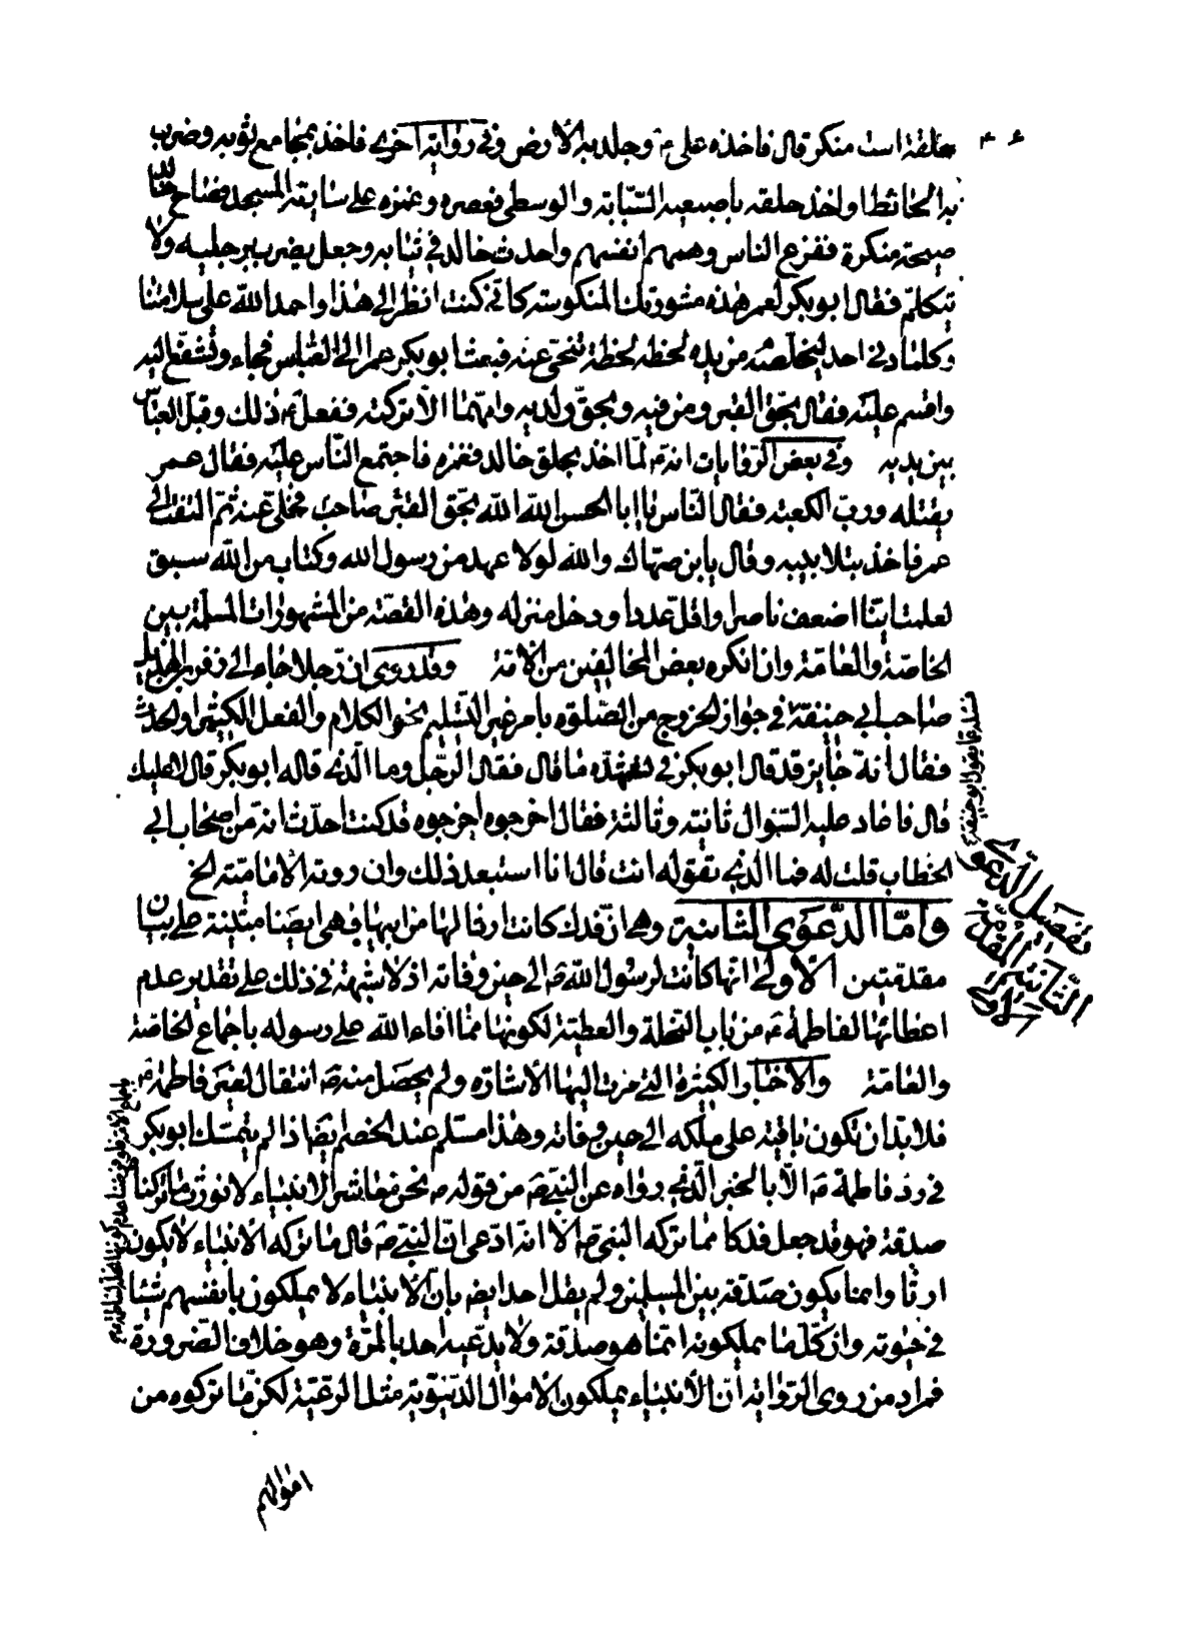 حلقة است منكر قال فاخذه علي ع وجلد به الأرض وفي رواية اخرى فاخذ بمجامع ثوبه وضرب
به الحائط او اخذ حلقه باصبعيه السبّابة والوسطى فعصره وغمزه على سارية المسجد فصاح خالد
صيحة منكرة ففزع الناس وهمهم انفسهم واحدث خالد في ثيابه وجعل يضرب برجليه ولا
يتكلم فقال ابو بكر لعمر هذه مشورتك المنكوسة كاني كنت انظر الى هذا واحمد الله على سلامتنا
وكلما دنى احد ليخلصه من يده لحظه لحظة تنحى عنه فبعث ابو بكر عمر الى العباس فجاء وتشفع اليه
واقسم عليه فقال بحق القبر ومن فيه وبحق ولديه وامهما الا تركته ففعل ع ذلك وقبل العباس
بين يديه وفي بعض الروايات انه ع لما اخذ بحلق خالد فغمزه فاجتمع الناس عليه فقال عمر
يقتله ورب الكعبة فقال الناس يا ابا الحسن الله الله بحق القبر صاحب فخلى عنه ثم التفت الى
عمر فاخذ بتلابيبه وقال يابن صهاك والله لولا عهد من رسول الله وكتاب من الله سبق
لعلمت اينا اضعف ناصرا واقل عددا ودخل منزله وهذه القصة من المشهورات المسلمة بين
الخاصة والعامة وان انكره بعض المخالفين من الامة وقد روى ان رجلا جاء الى زفر بن الهذيل
صاحب ابي حنيفة في جواز الخروج من الصلوة بامر غير التسليم نحو الكلام والفعل الكثير او الحدث
فقال انه جايز قد قال ابو بكر في تشهده ما قال فقال الرجل وما الذي قاله ابو بكر قال لا عليك
قال فاعاد عليه السؤال ثانية وثالثة فقال اخرجوه اخرجوه قد كنت احدث انه من اصحاب ابي
الخطاب قلت له فما الذي تقوله انت قال انا استبعد ذلك وان روته الامامية الخ
وامّا الدّعوى الثانية وهي ان فدك كانت ارثا لها من ابيها فهي ايضا مبتنية على بيان
مقدمتين الاولى انها كانت لرسول الله ص الى حين وفاته اذ لا شبهة في ذلك على تقدير عدم
اعطائها لفاطمة ع من باب النحلة والعطية لكونها مما افاء الله على رسوله باجماع الخاصة
والعامة والاخبار الكثيرة التي مرت اليها الاشارة ولم يحصل منه ص انتقال لغير فاطمة ع
فلا بد ان تكون باقية على ملكه الى حين وفاته وهذا مسلم عند الخصم ايضا اذ لم يتمسك ابو بكر
في رد فاطمة ع الا بالخبر الذي رواه عن النبي ص من قوله ص نحن معاشر الانبياء لا نورث ما تركنا
صدقة فهو قد جعل فدكا مما تركه النبي ص الا انه ادعى ان النبي ص قال ما تركه الانبياء لا يكون
ارثا وانما يكون صدقة بين المسلمين ولم يقل احد ايضا بان الانبياء لا يملكون بانفسهم شيئا
في حيوته وان كل ما يملكونه انما هو صدقة ولا يدعيه احد بالمرة وهو خلاف الضرورة
فمراد من روى الرواية ان الأنبياء يملكون الاموال الدنيوية مثل الرعية لكن ما تركوه من
اموالهم
تفصيل الدعوى
الثانية